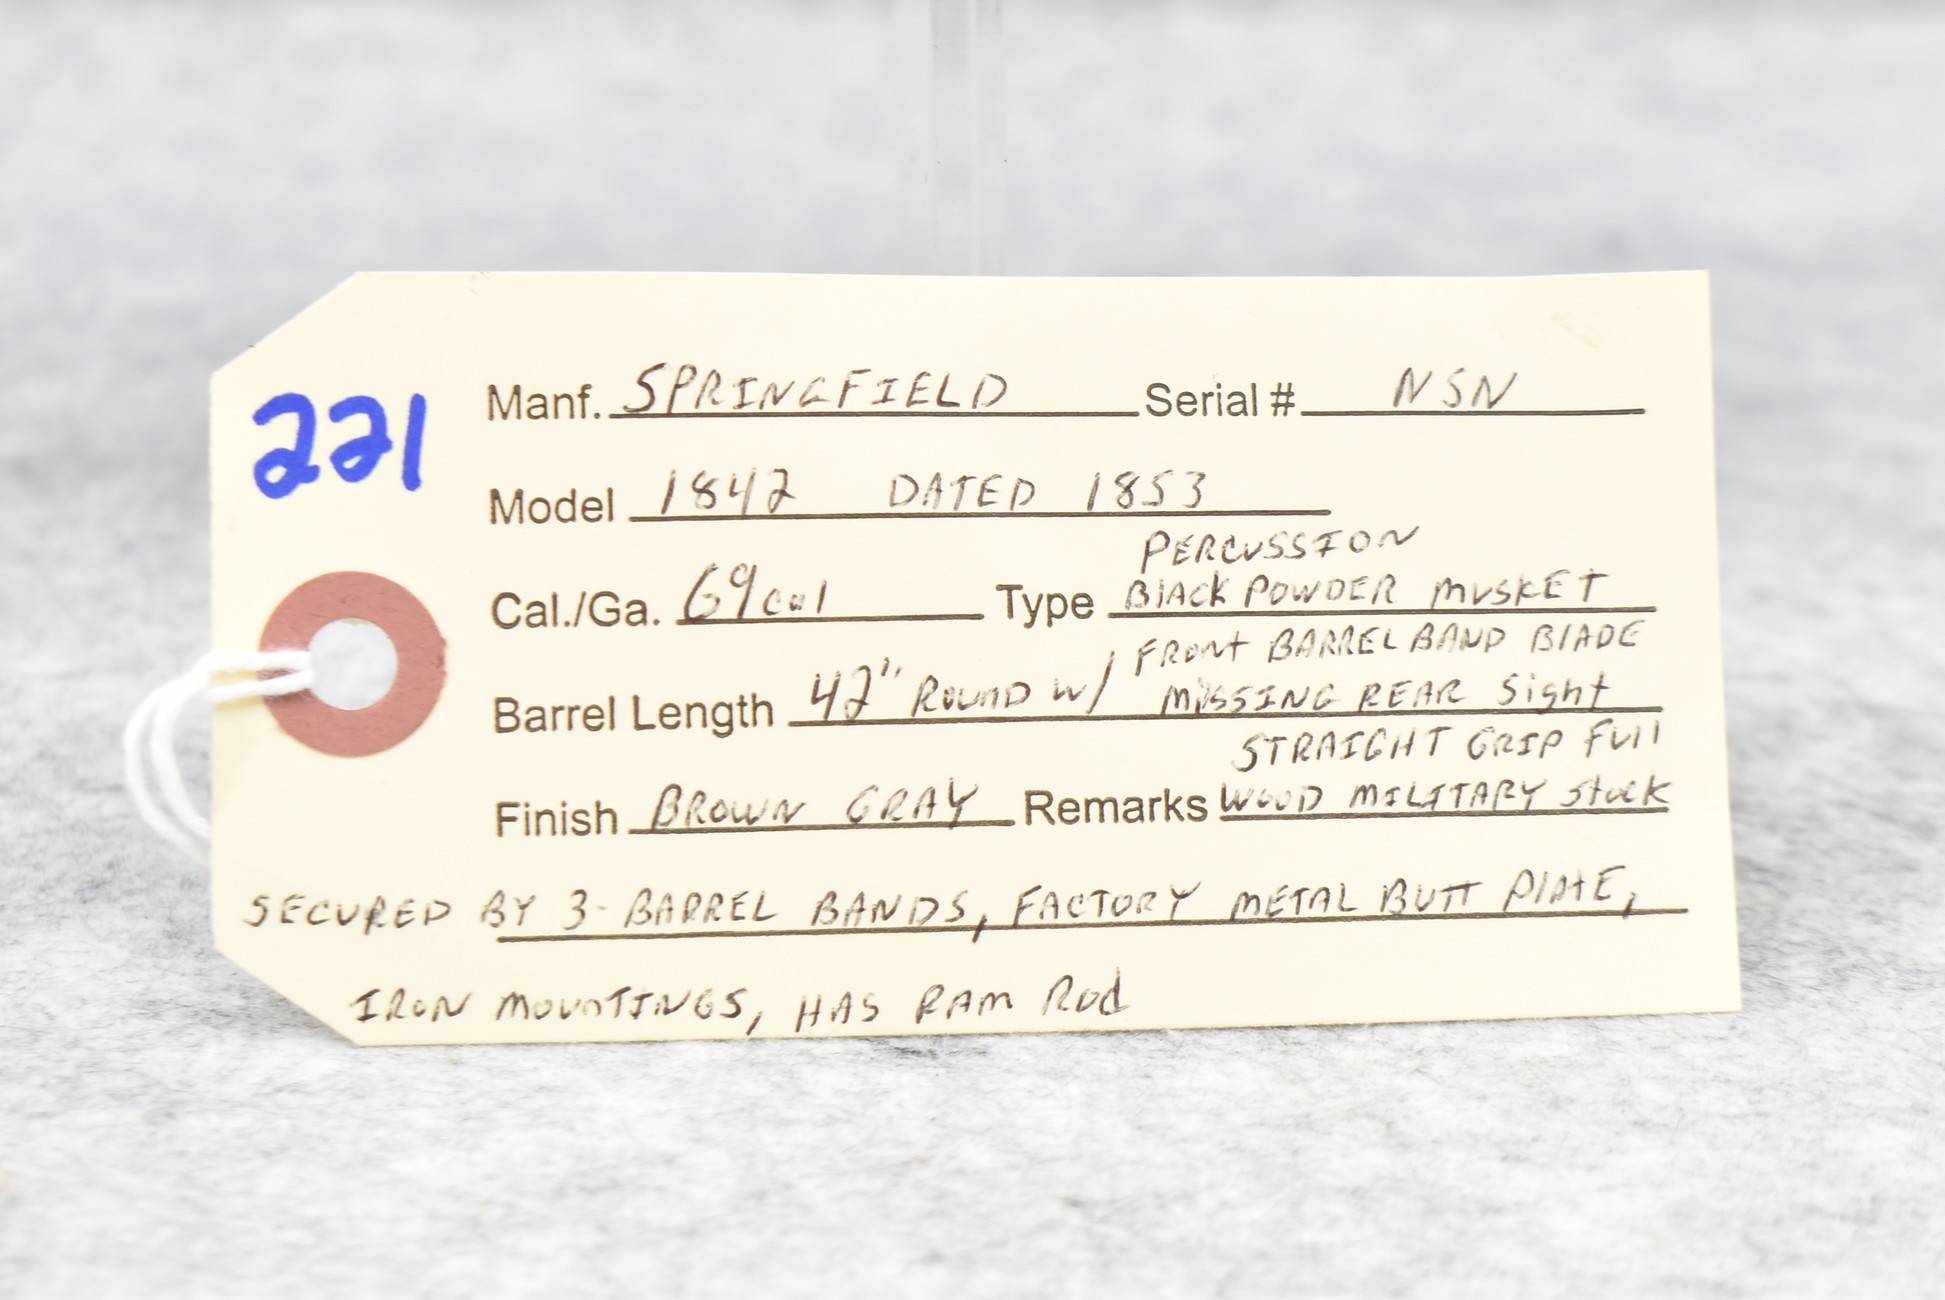 221
Manf. SPRINGFIELD Serial # NSN
Model 1842 DATED 1853
PERCUSSION
Cal./Ga. 69cal Type BlAck POWDER MUSKET
FRONT BARREL BAND BlADE
Barrel Length 42" ROUND W/ MISSING REAR Sight
STRAIGHT GRIP FUll
Finish BROWN GRAY Remarks WOOD MILITARY Stock
SECURED BY 3-BARREL BANDS, FACTORY METAL BUTT PlAtE,
IRON MOUNTINGS, HAS RAM Rod